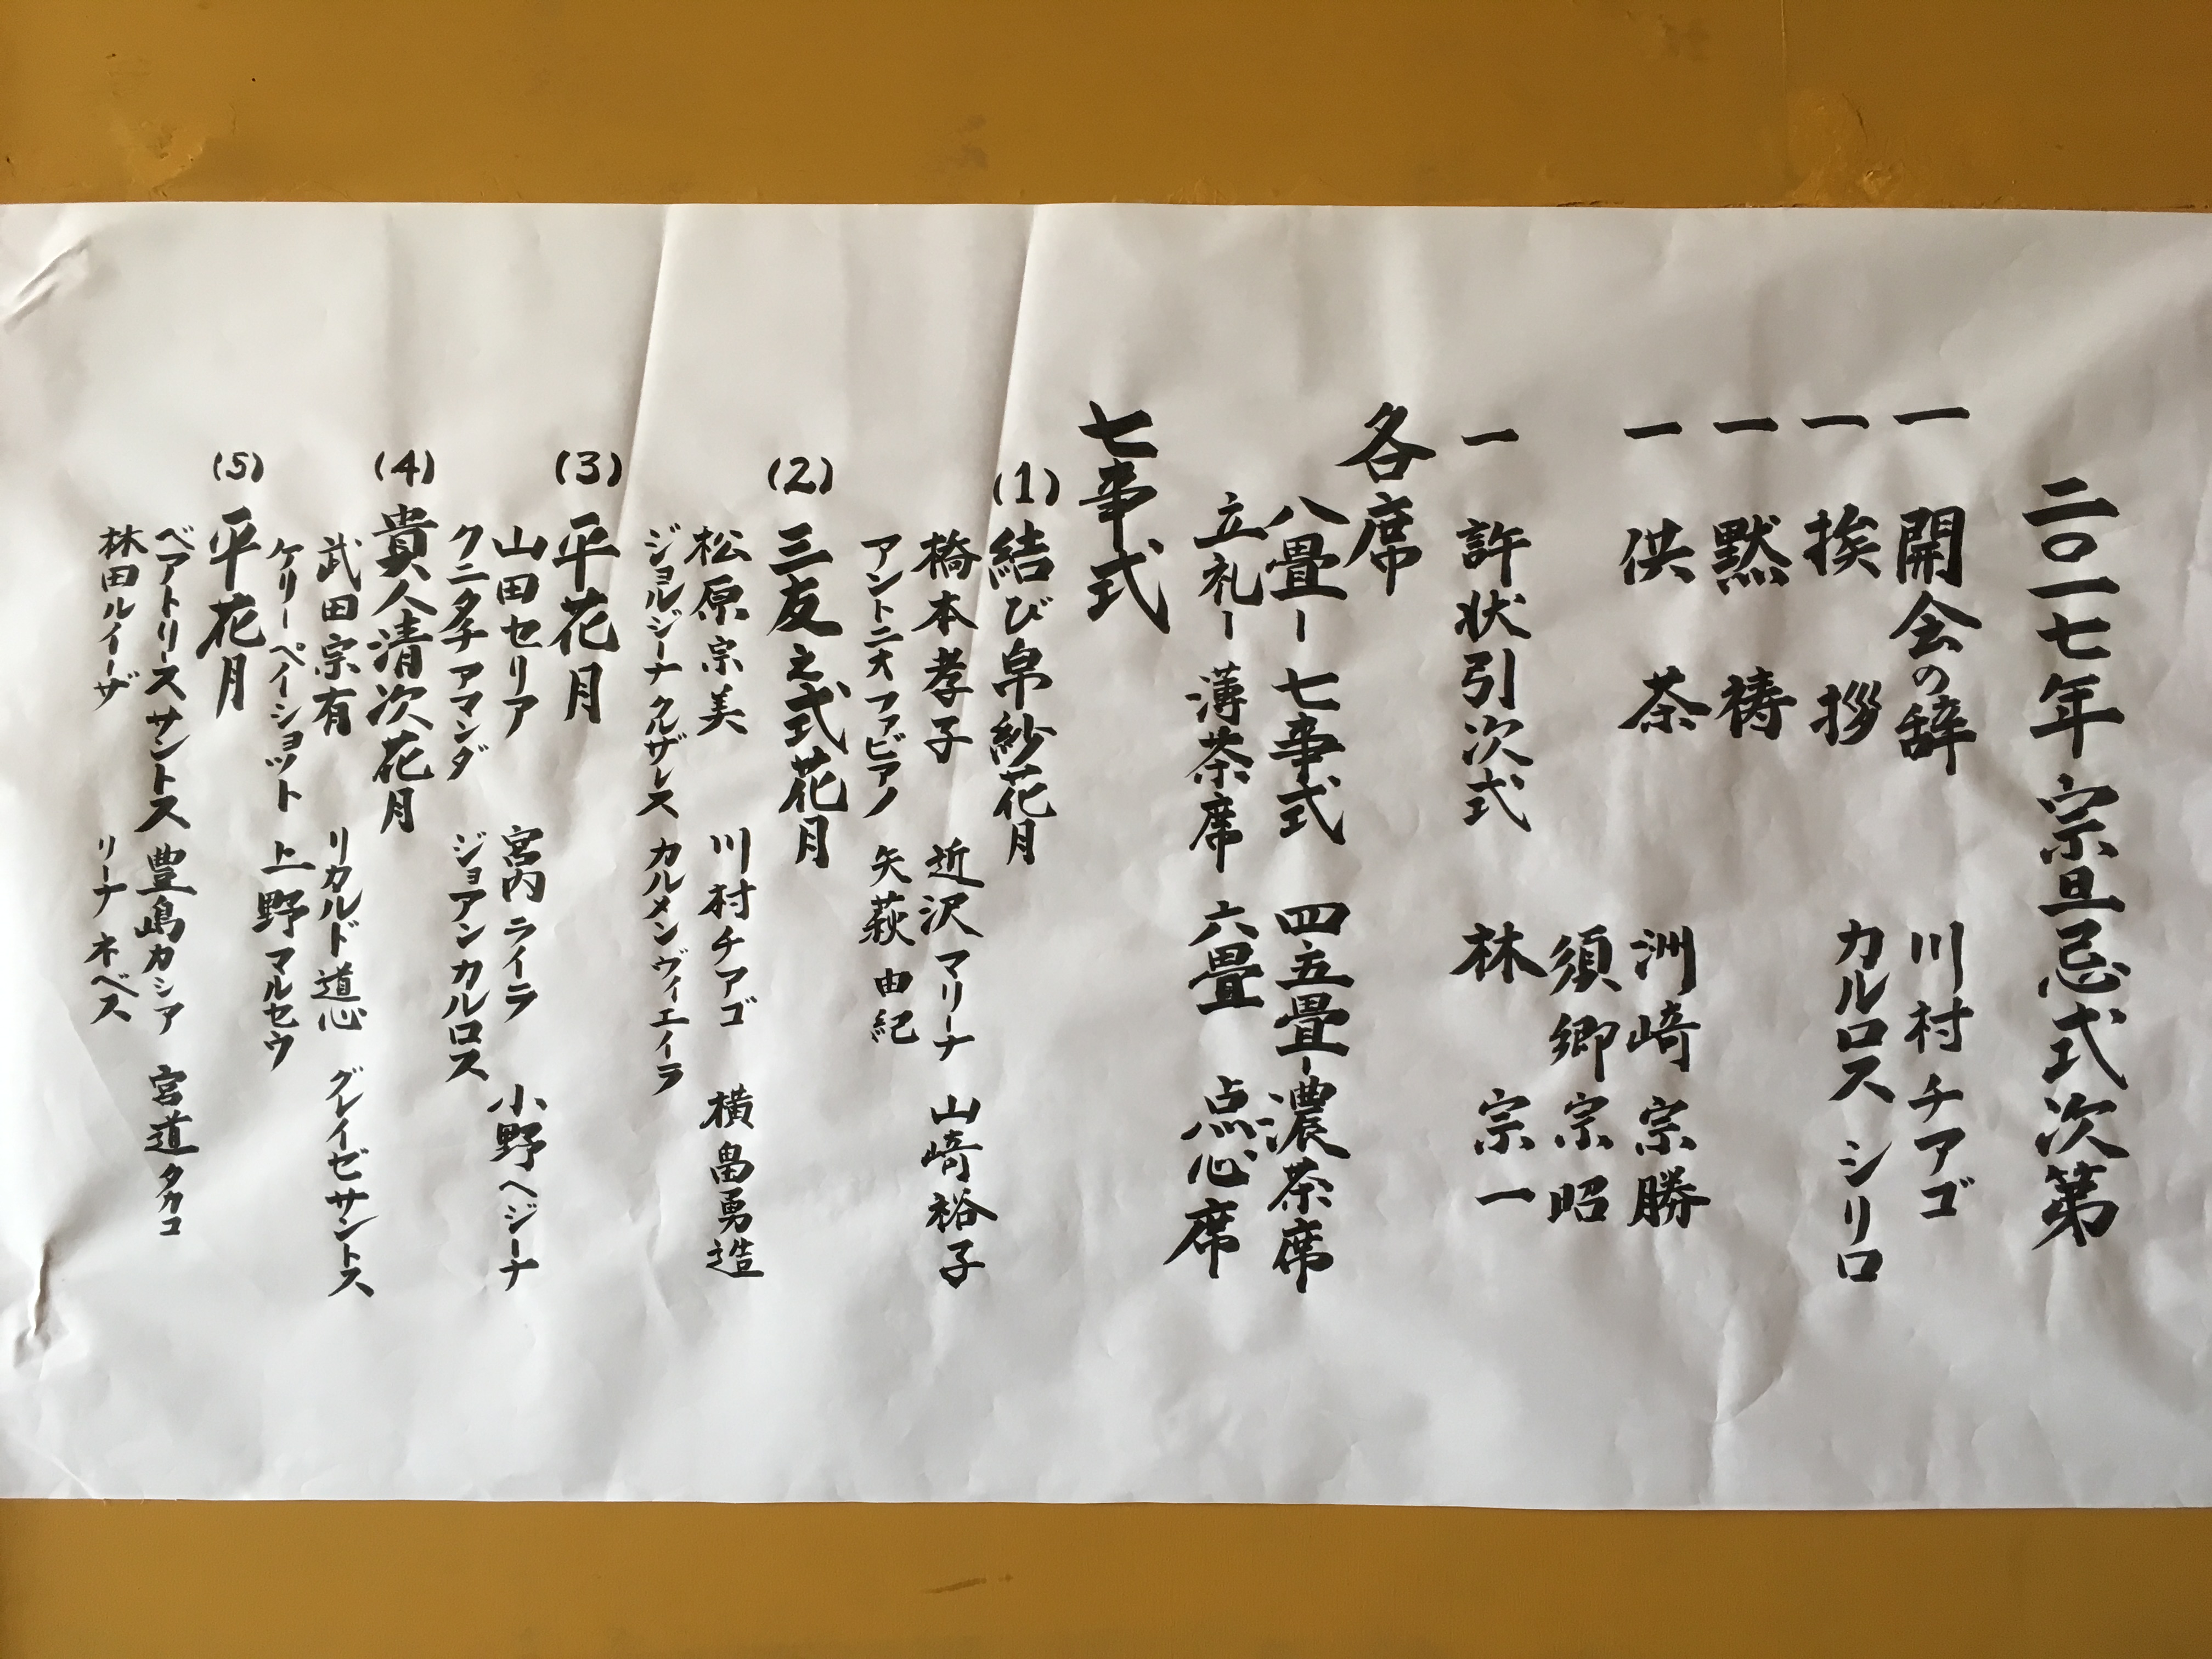 二〇一七年宗旦忌式次第
一 開会の辞 川村チアゴ
一 挨拶 カルロス シリロ
一 黙祷
一 供茶 洲崎宗勝
須郷宗昭
一 許状引次式 林宗一
各席
八畳ー七事式 四五畳ー濃茶席
立礼ー薄茶席 六畳 点心席
七事式
(1) 結び帛紗花月
橋本孝子 近沢マリーナ 山崎裕子
アントニオファビアノ 矢萩由紀
(2) 三友之式花月
松原宗美 川村チアゴ 横畠勇造
ジョルジーナクルザレス カルメンヴィエイラ
(3) 平花月
山田セリア 宮内ライラ 小野ヘジーナ
クニタチアマンダ ジョアンカルロス
(4) 貴人清次花月
武田宗有 リカルド道心 グレイゼサントス
ケリーペイショット 上野マルセウ
(5) 平花月
ベアトリースサントス 豊嶋カシア 宮道タカコ
林田ルイーザ リーナ ネベス